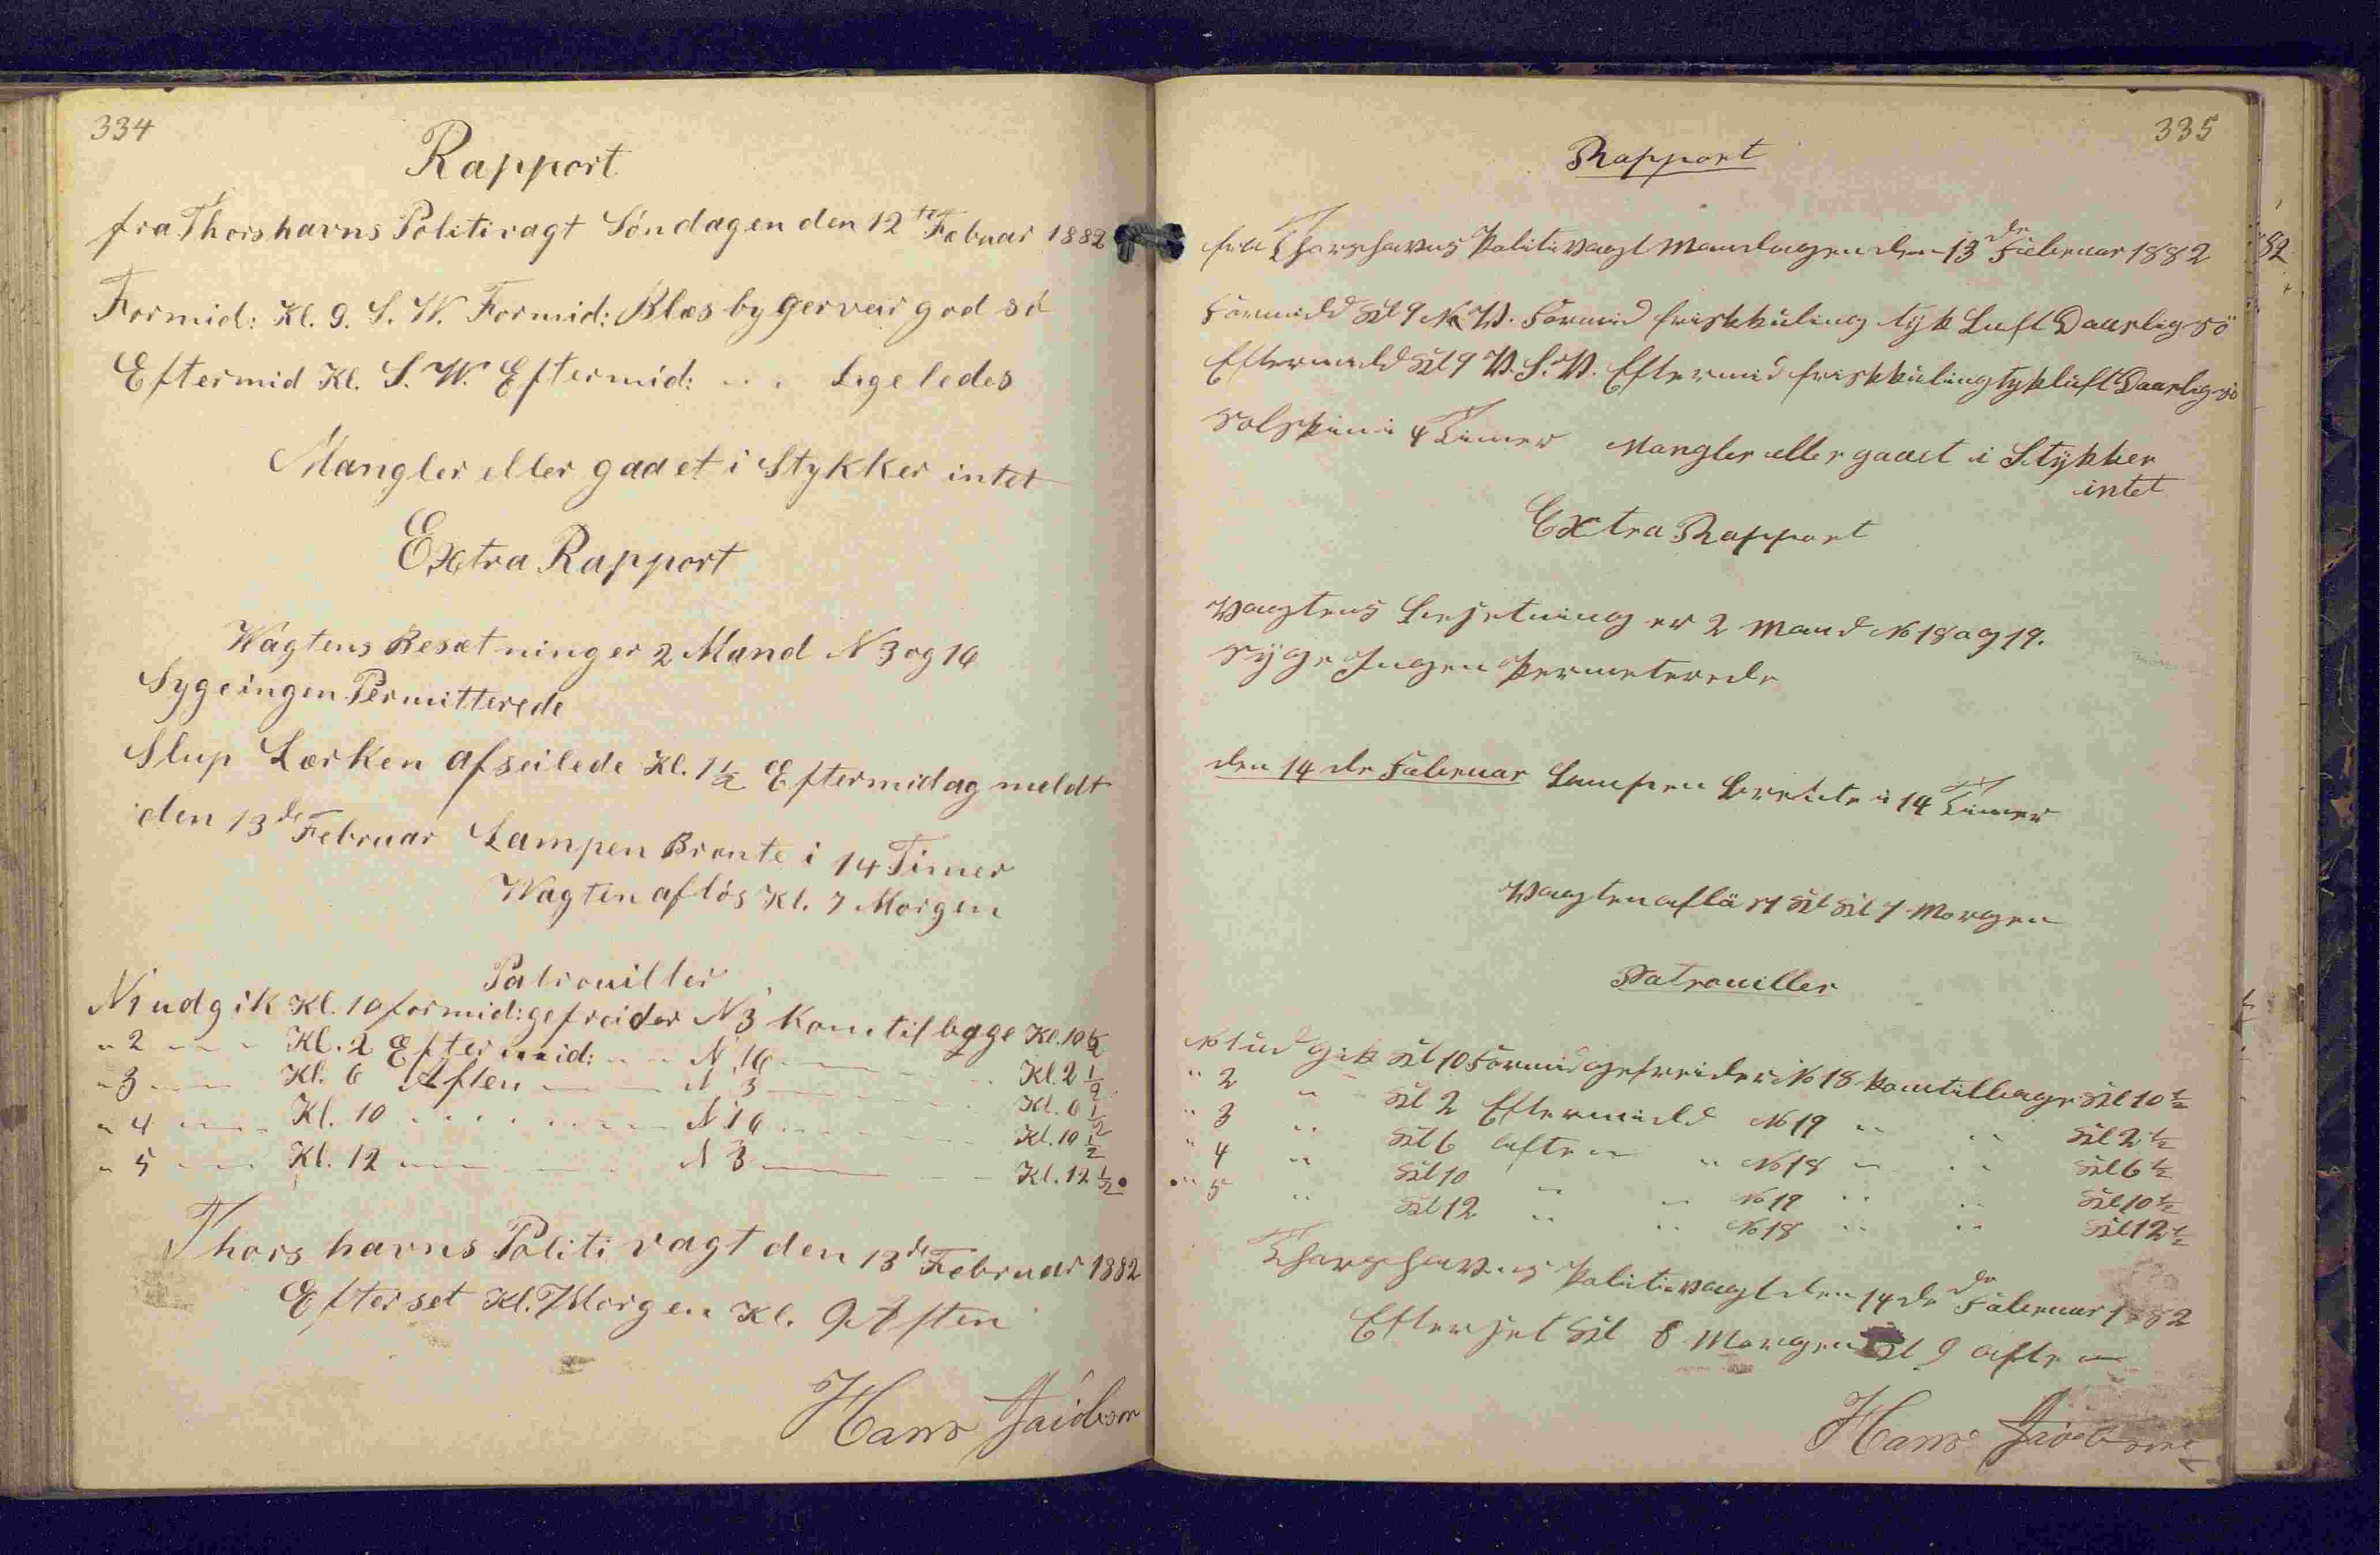 334
Rapport
fra Thorshavns Politivagt Söndagen den 12te Februar 1882
Formid: Kl. 9. S. W. Formid: Blæs bygerveir god sö
Eftermid Kl. S. W. Eftermid: " " Ligeledes
Mangler eller gaaet i Stykker intet
Extra Rapport
Wagtens Besætning er 2 Mand N 3 og 16
Syge ingen Permitterede
Slup Lærken afseilede Kl. 1 1/2 Eftermidag meldt
den 13de Februar Lampen Brænte i 14 Timer
Wagten aflös Kl. 7 Morgen
Patrouiller
N 1 udgik Kl. 10 formid: gefreider N 3 kom tilbage Kl. 10 1/2
" 2 " " Kl. 2 Eftermid: " " N 16 " " Kl. 2 1/2
" 3 " " Kl. 6 Aften " " N 3 " " Kl. 6 1/2
" 4 " " Kl. 10 " " N 16 " " Kl. 10 1/2
" 5 " " Kl. 12 " " N 3 " " Kl. 12 1/2
Thorshavns Politivagt den 13de Februar 1882
Efterset Kl. 7 Morgen Kl. 9 Aften
Hans Jacobsen
335
Rapport
fra Thorshavns Politivagt Mandagen den 13de Februar 1882
Formidd Kl 9 N. W. Formid friskkuling tyk Luft Daarlig sö
Eftermidd Kl 9 V. S. V. Eftermid friskkuling tykluft Daarlig sö
Solskin i 4 Timer Mangler eller gaaet i Stykker
intet
Extra Rapport
Vagtens Besetning er 2 Mand No 18 og 19.
Syge Ingen Permeterede
den 14de Februar Lampen Brente i 14 Timer
Vagten aflöst Kl Kl 7 Morgen
Patrouiller
No 1 ud gik Kl 10 Formid gefreider No 18 kom tilbage Kl 10 1/2
" 2 " Kl 2 Eftermidd No 19 " " Kl 2 1/2
" 3 " Kl 6 aften " No 18 " " Kl 6 1/2
" 4 " Kl 10 " " No 19 " " Kl 10 1/2
" 5 " Kl 12 " " No 18 " " Kl 12 1/2
Thorshavns Politivagt den 14de Februar 1882
Efterset Kl 8 Morgen Kl 9 aften
Hans Jacobsen
82